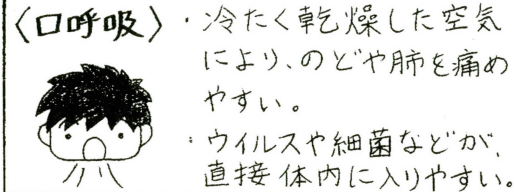 〈口呼吸〉
・冷たく乾燥した空気
により、のどや肺を痛め
やすい。
・ウイルスや細菌などが、
直接体内に入りやすい。